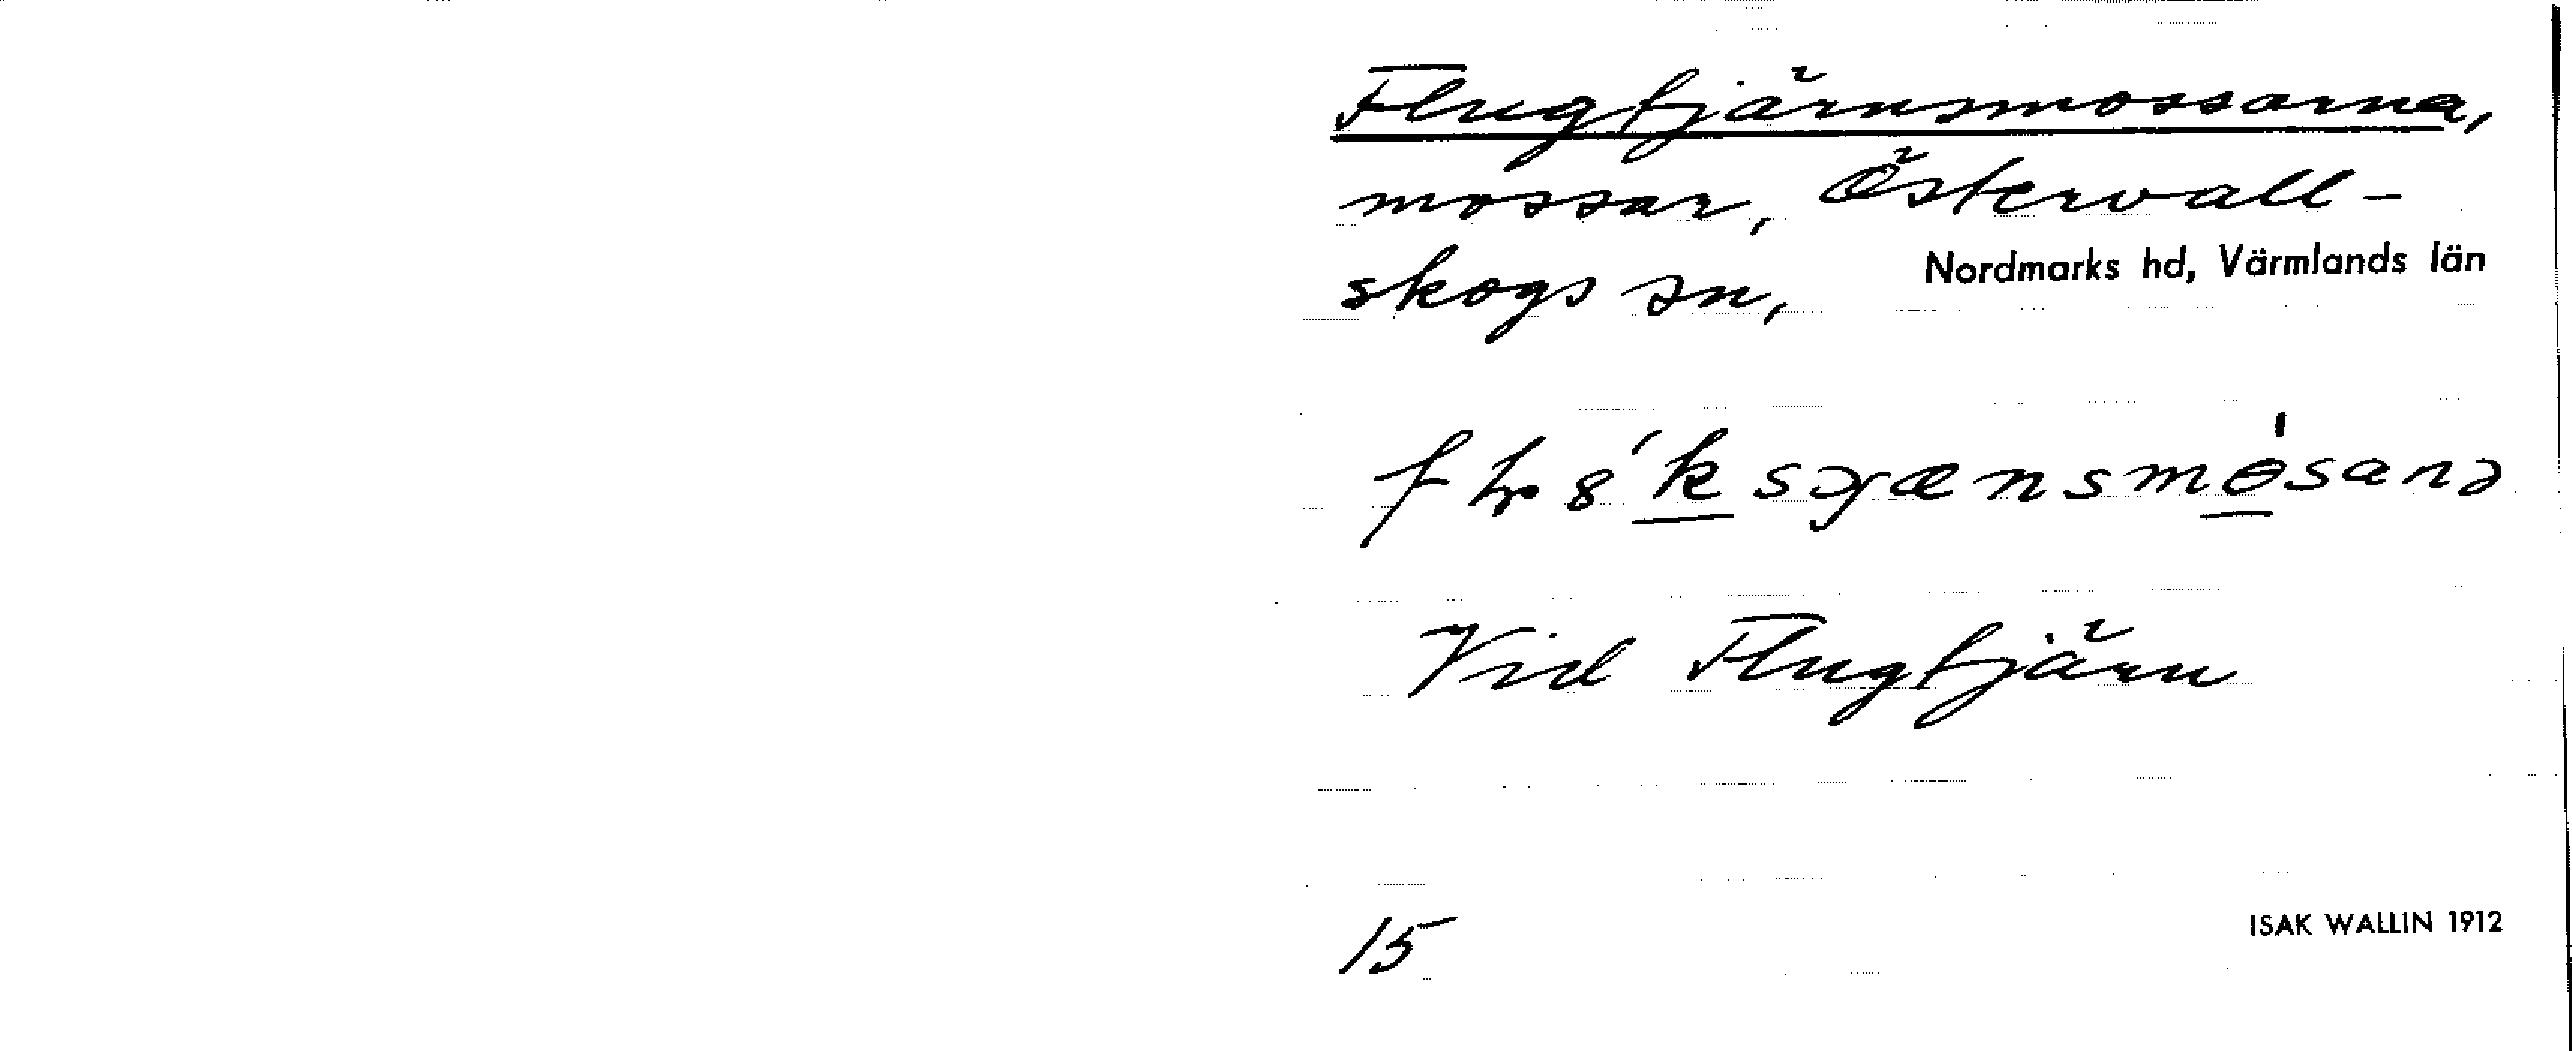 Flugtjärnsmossarna,
mossar, Östervall-
skogs sn, Nordmarks hd, Värmlands län
Vid Flugtjärn
15 ISAK WALLIN 1912